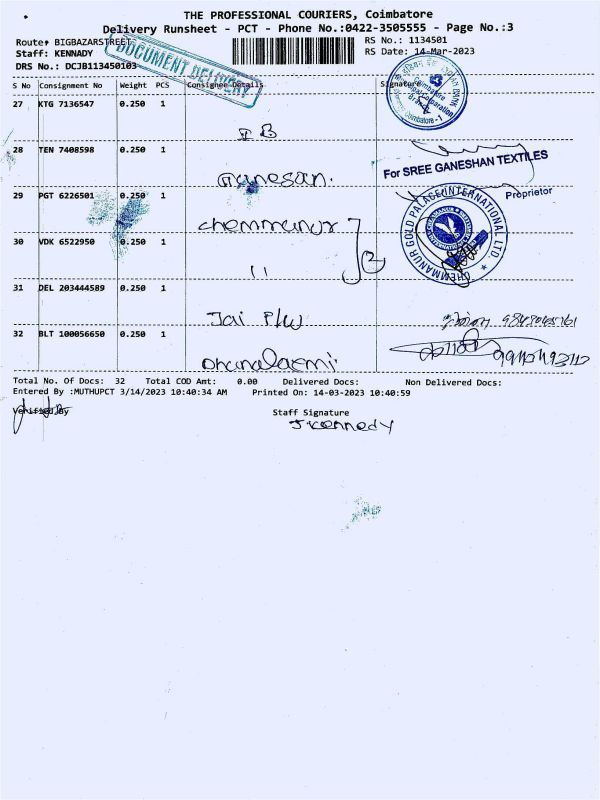 THE PROFESSIONAL COURIERS, Coimbatore
Delivery Runsheet - PCT - Phone No.:0422-3505555 - Page No.:3
Route: BIGBAZARSTREET
RS No.: 1134501
Staff: KENNADY
RS Date: 14-Mar-2023
DRS No.: DCJB113450103
DOCUMENT DELIVERY
S No Consignment No Weight PCS Consignee Details Signature
27 KTG 7136547 0.250 1
IB
28 TEN 7408598 0.250 1
For SREE GANESHAN TEXTILES
Proprietor
29 PGT 6226501 0.250 1
chemmanur
CHEMMANUR GOLD PALACE INTERNATIONAL LTD.
30 VDK 6522950 0.250 1
" 2
31 DEL 203444589 0.250 1
Jai
32 BLT 100056650 0.250 1
Dhanalaxmi
Total No. Of Docs: 32 Total COD Amt: 0.00 Delivered Docs: Non Delivered Docs:
Entered By :MUTHUPCT 3/14/2023 10:40:34 AM Printed On: 14-03-2023 10:40:59
Verified By
Staff Signature
J Kennedy